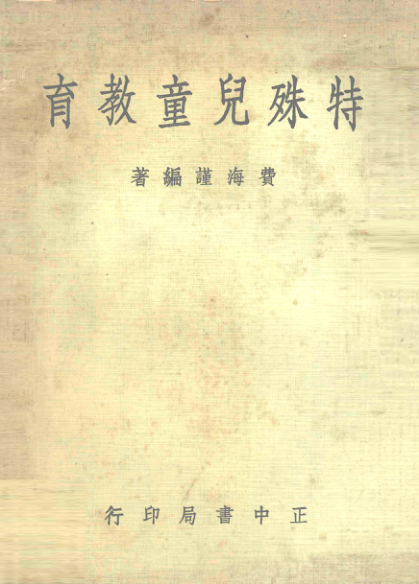 特殊兒童教育
費海謹編著
正中書局印行